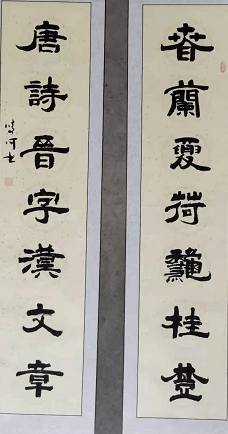 春蘭夏荷龝桂楚
唐詩晉字漢文章